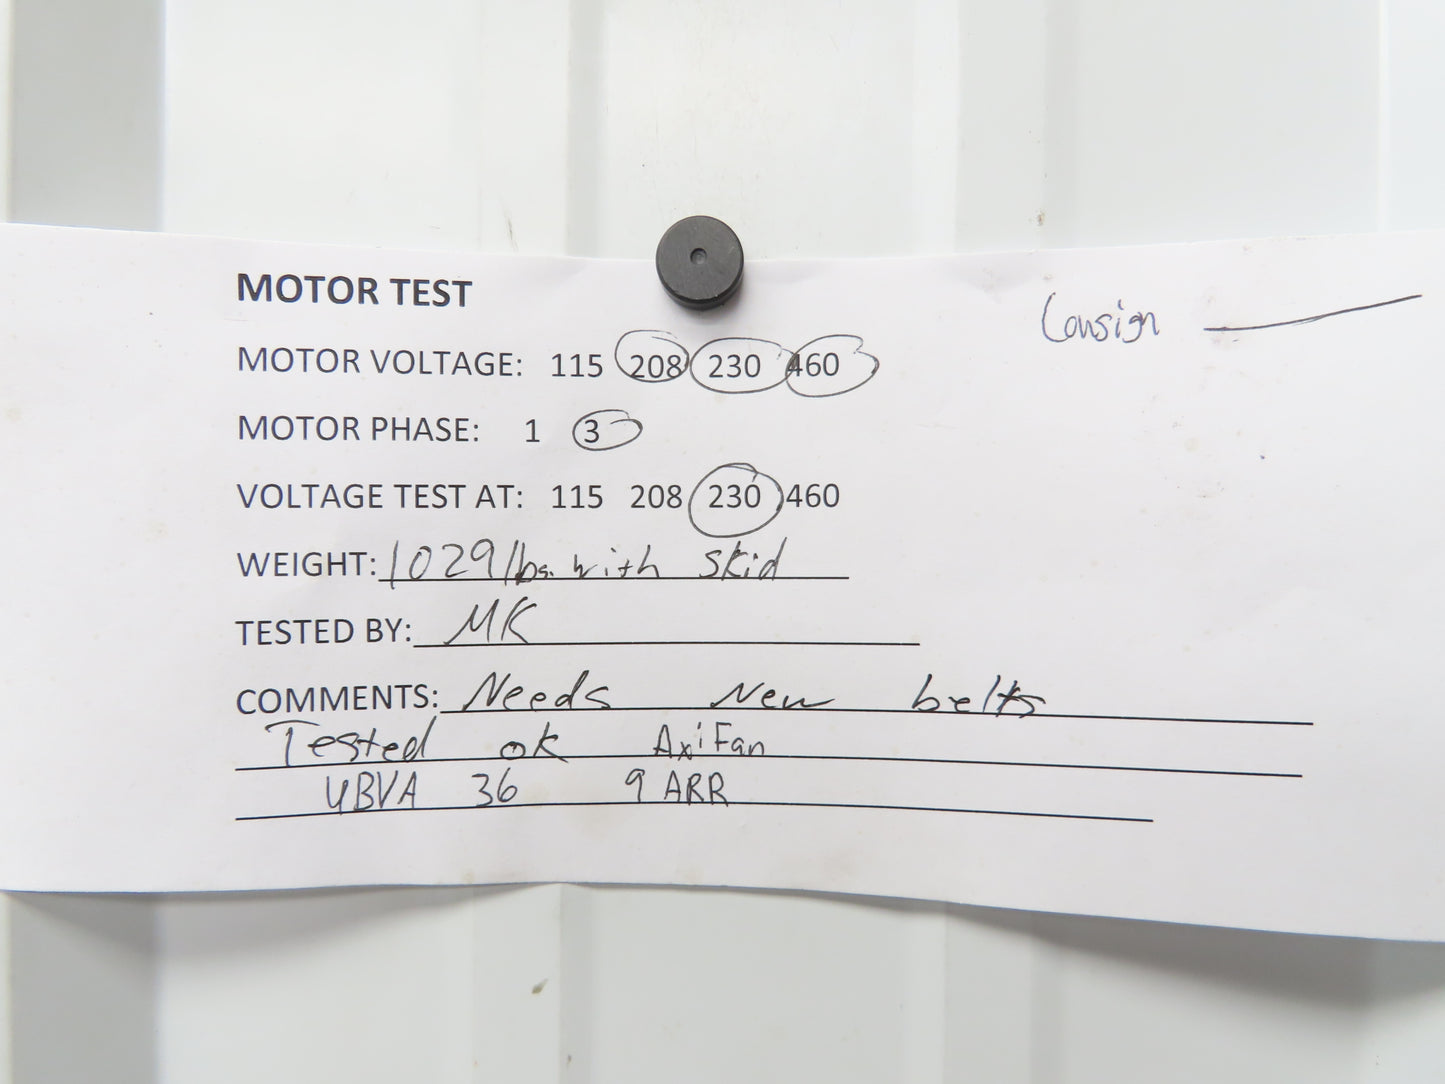 MOTOR TEST
Consign
MOTOR VOLTAGE: 115 208 230 460
MOTOR PHASE: 1 3
VOLTAGE TEST AT: 115 208 230 460
WEIGHT: 1029 lbs. with skid
TESTED BY: MK
COMMENTS: Needs New belts
Tested ok AxiFan
UBVA 36 9 ARR